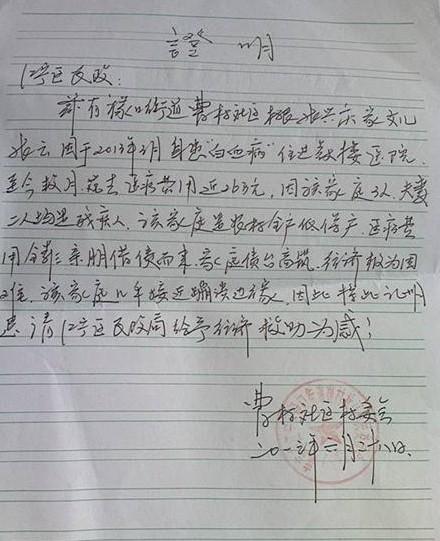 證明
江宁区民政:
兹有禄口街道曹村社区村民张兴庆家女儿
张云因于2013年3月身患"白血病"住进鼓楼医院.
至今数月.花去医疗费用近26万元,因该家庭3人,夫妻
二人均是残疾人.该家庭是农村全户低保户,医疗费
用全靠亲朋借债而来,家庭债台高筑,经济极为困
难,该家庭几年接近崩溃边缘,因此特此证明
恳请江宁区民政局给予经济救助为感!
曹村社区村委会
二〇一三年六月二十八日.